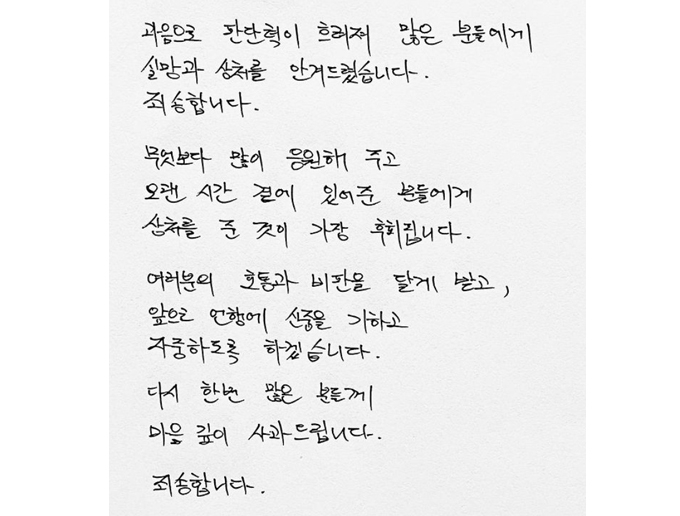 과음으로 판단력이 흐려져 많은 분들에게
실망과 상처를 안겨드렸습니다.
죄송합니다.
무엇보다 많이 응원해 주고
오랜 시간 곁에 있어준 분들에게
상처를 준 것이 가장 후회됩니다.
여러분의 호통과 비판을 달게 받고,
앞으로 언행에 신중을 기하고
자중하도록 하겠습니다.
다시 한번 많은 분들께
마음 깊이 사과드립니다.
죄송합니다.